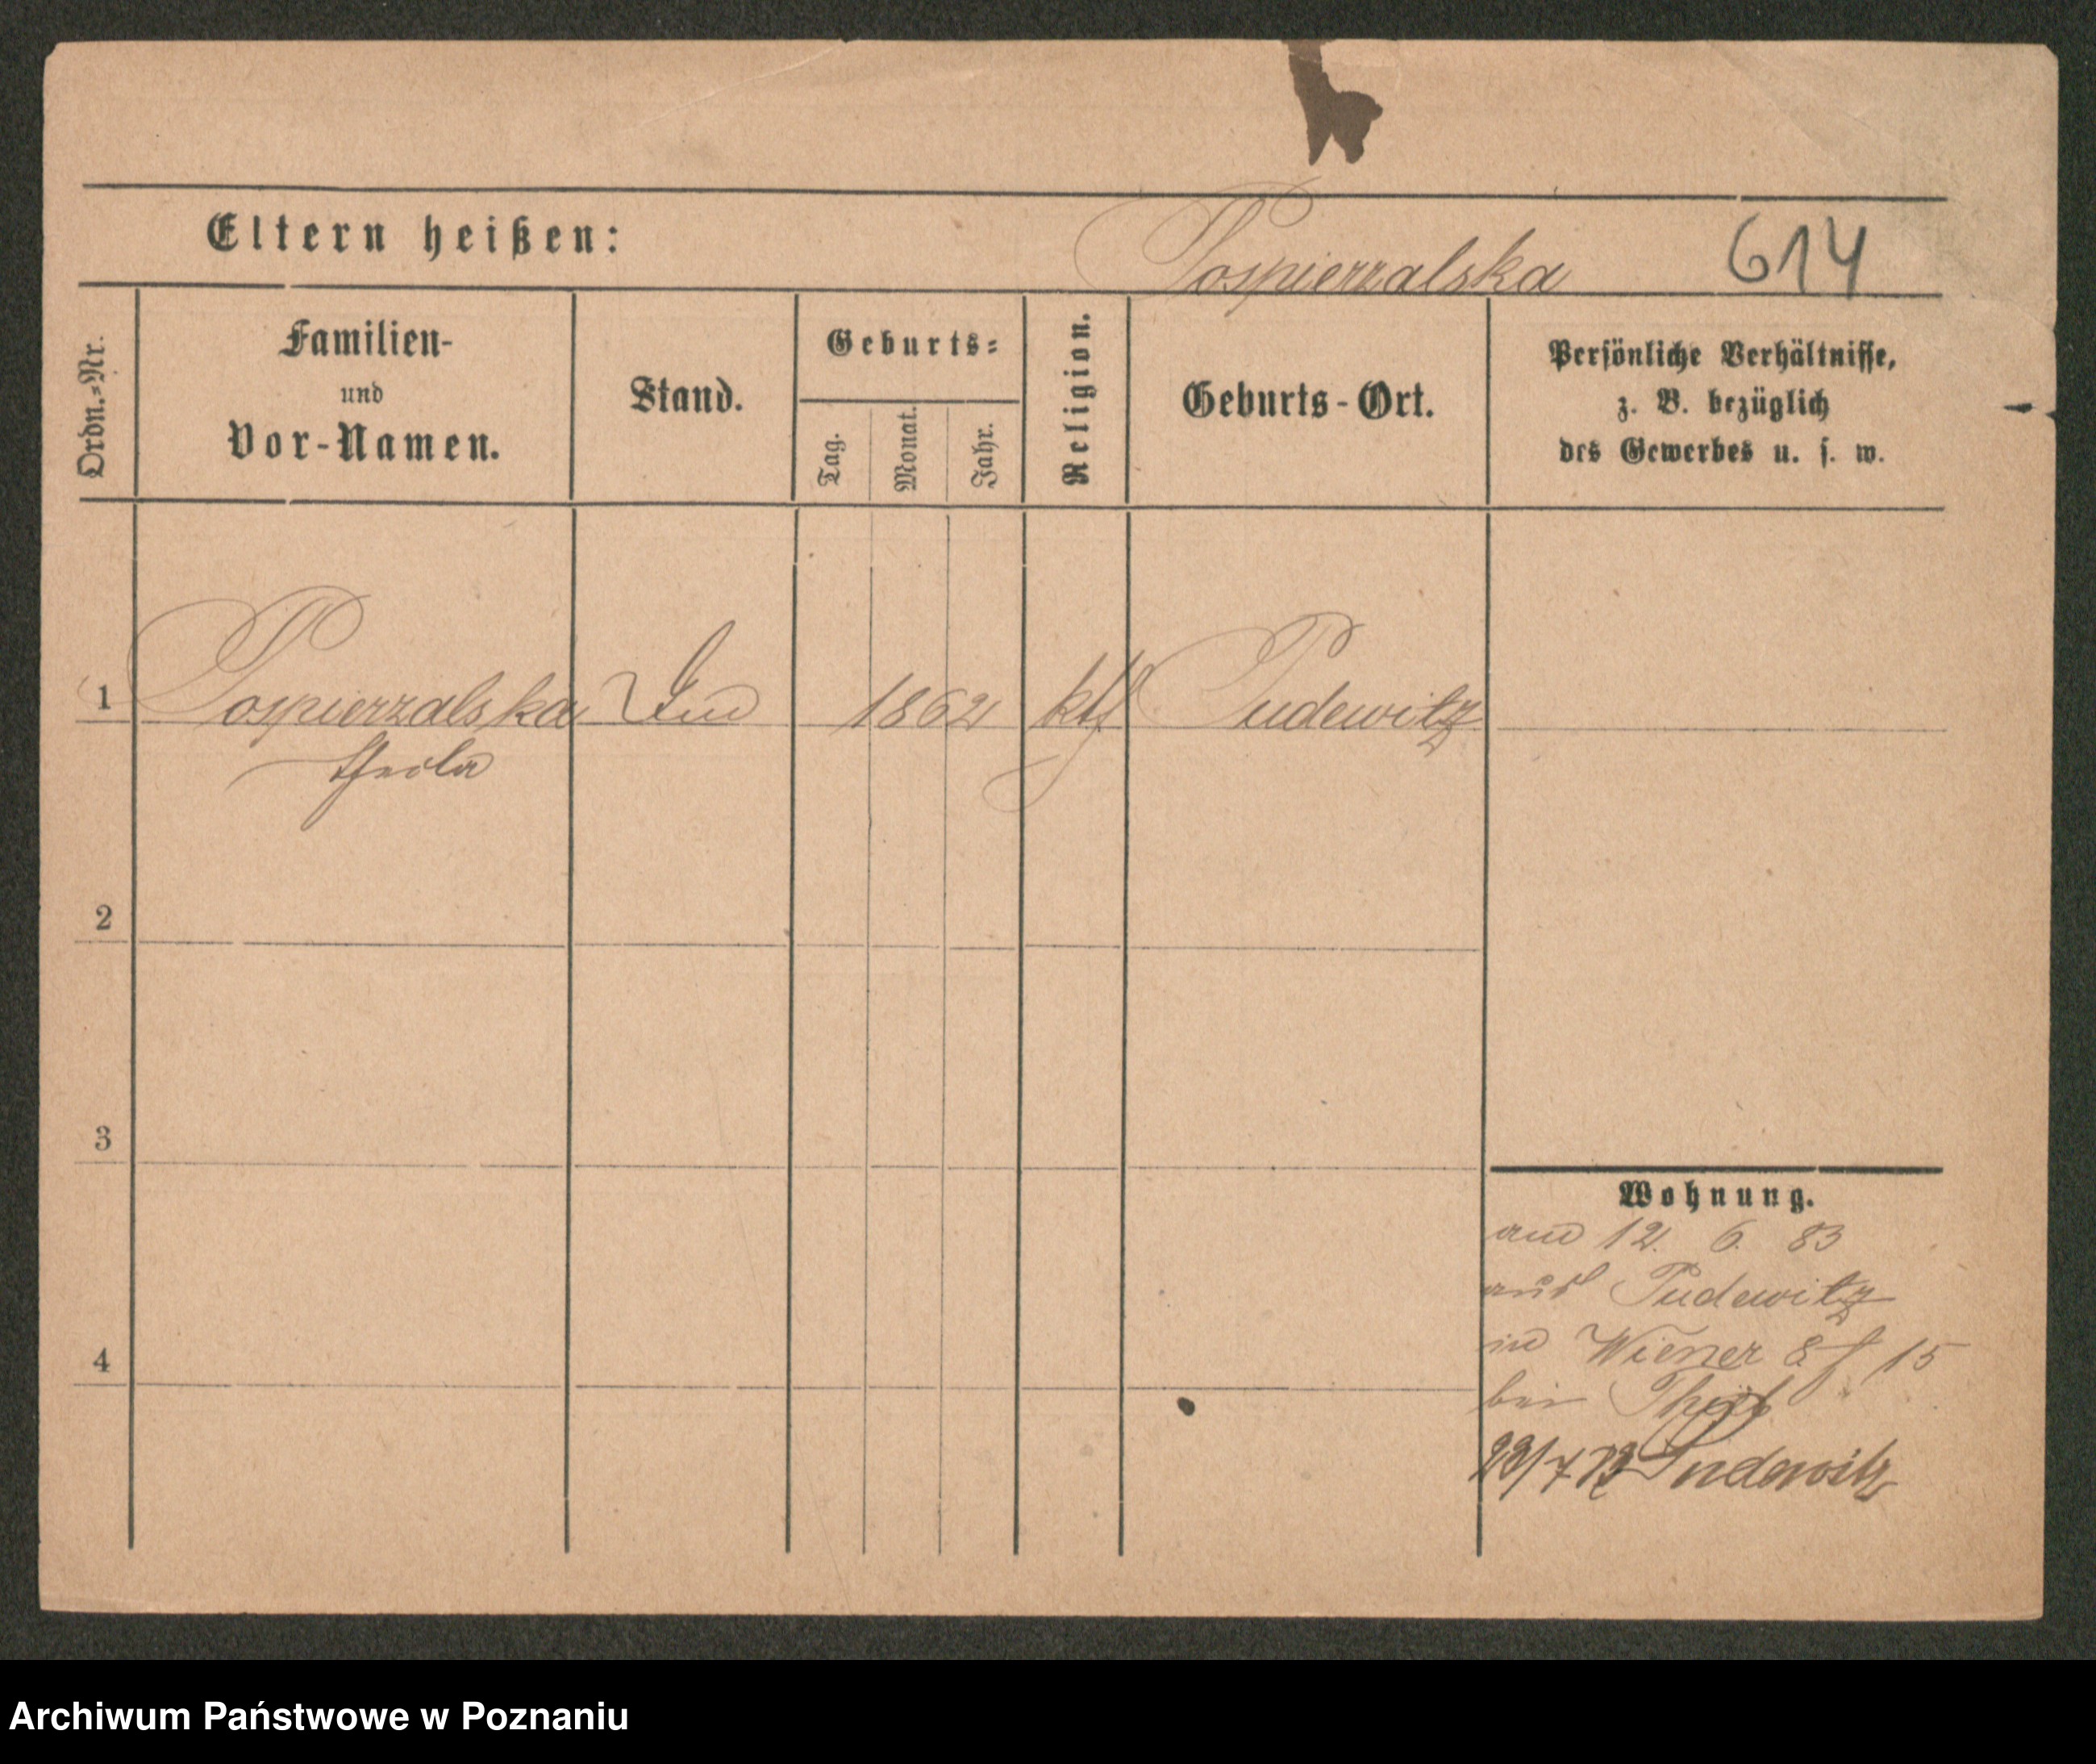 Eltern heißen:
Pospierzalska 614
Ordn.-Nr.
Familien-
und
Vor-Namen.
Stand.
Geburts-
Tag.
Monat.
Jahr.
Religion.
Geburts-Ort.
Persönliche Verhältnisse,
z. B. bezüglich
des Gewerbes u. s. w.
1 Pospierzalska 1862 kth Pudewitz
2
3
4
Wohnung.
12. 6. 83
aus Pudewitz
in Wiener 15
bei
23/7 Pudewitz
Archiwum Państwowe w Poznaniu